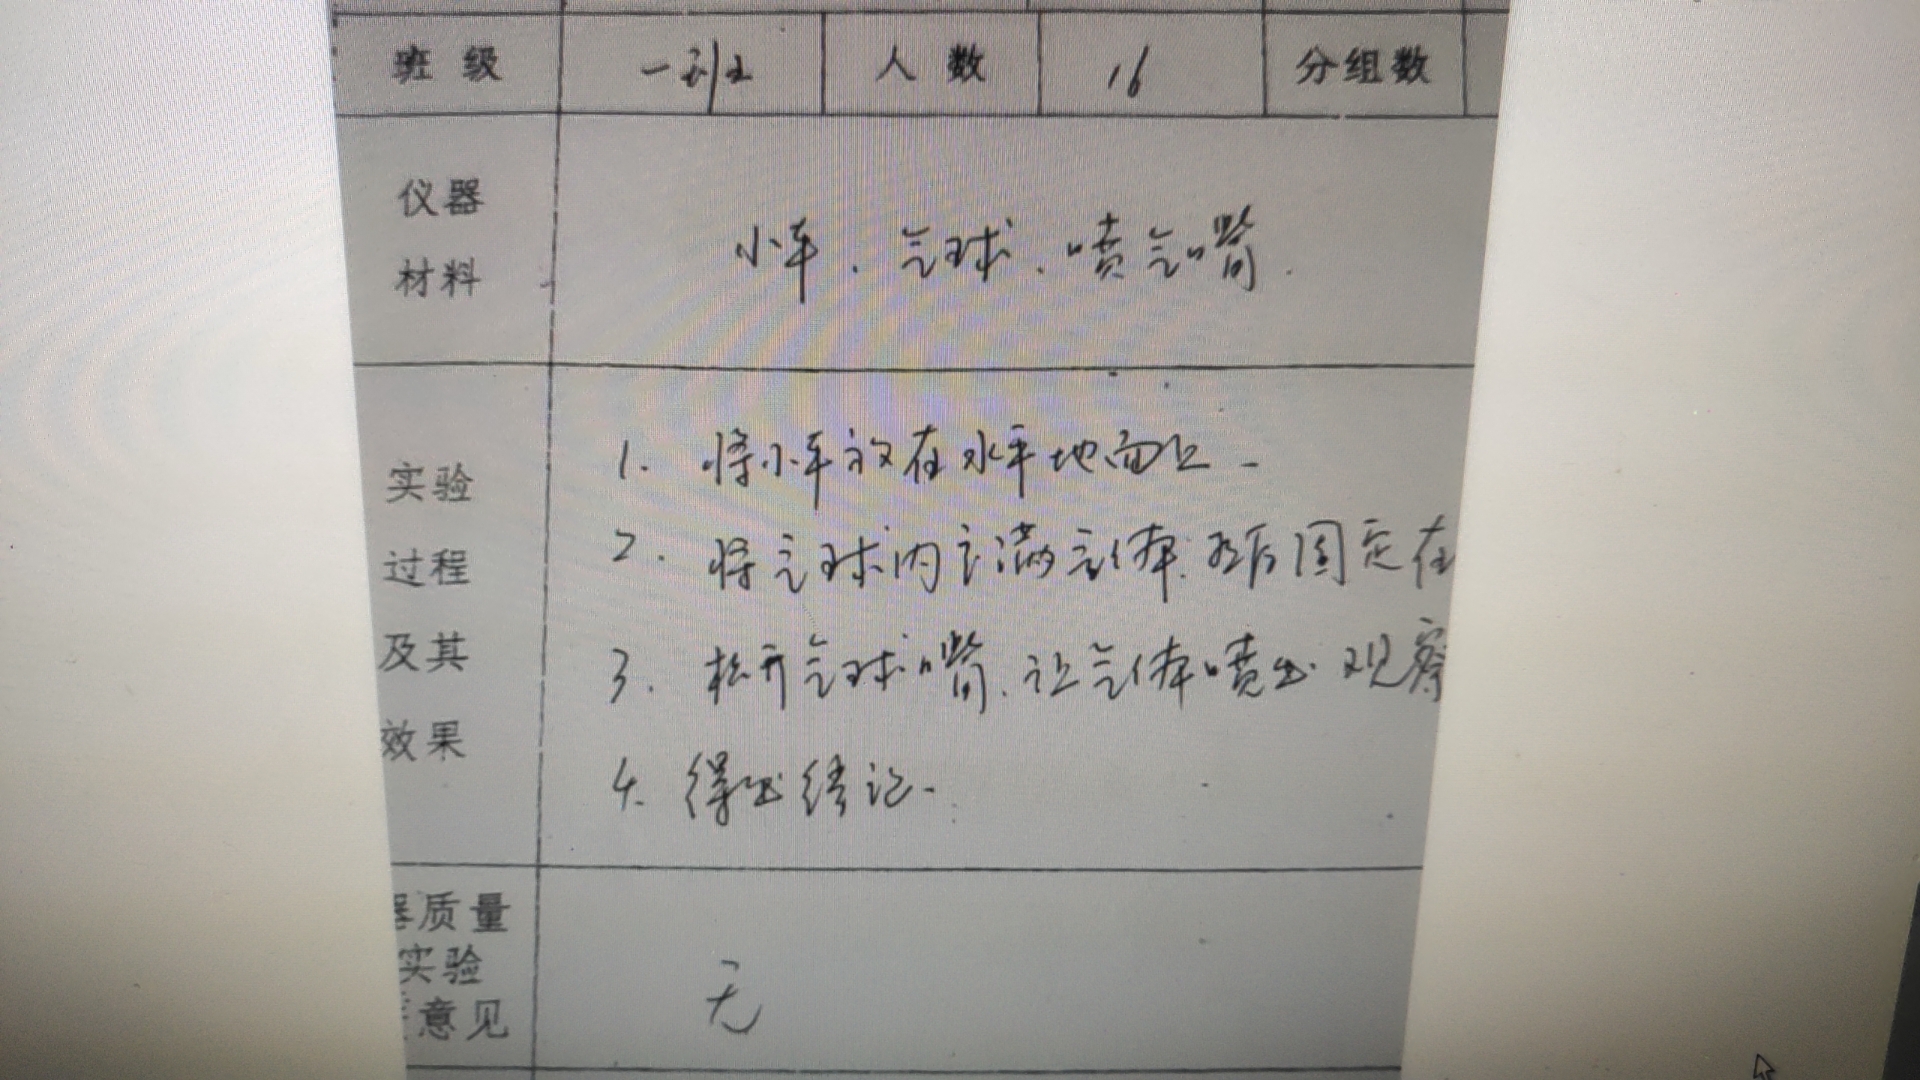 班级 一班 人数 16 分组数
仪器
材料
小车、气球、喷气嘴.
实验
过程
及其
效果
1. 将小车放在水平地面上.
2. 将气球内充满气体,然后固定在
3. 松开气球嘴,让气体喷出 观察
4. 得出结论.
器质量
实验
意见
无